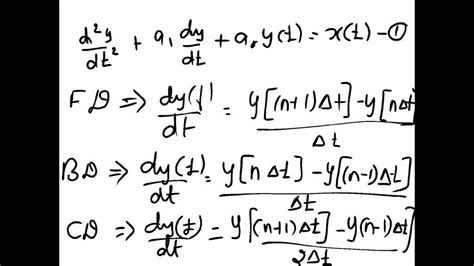 d²y/dt² + a₁ dy/dt + a₀ y(t) = x(t) - ①
FD ⇒ dy(t)/dt = y[(n+1)Δt] - y[nΔt] / Δt
BD ⇒ dy(t)/dt = y[nΔt] - y[(n-1)Δt] / Δt
CD ⇒ dy(t)/dt = y[(n+1)Δt] - y(n-1)Δt] / 2Δt